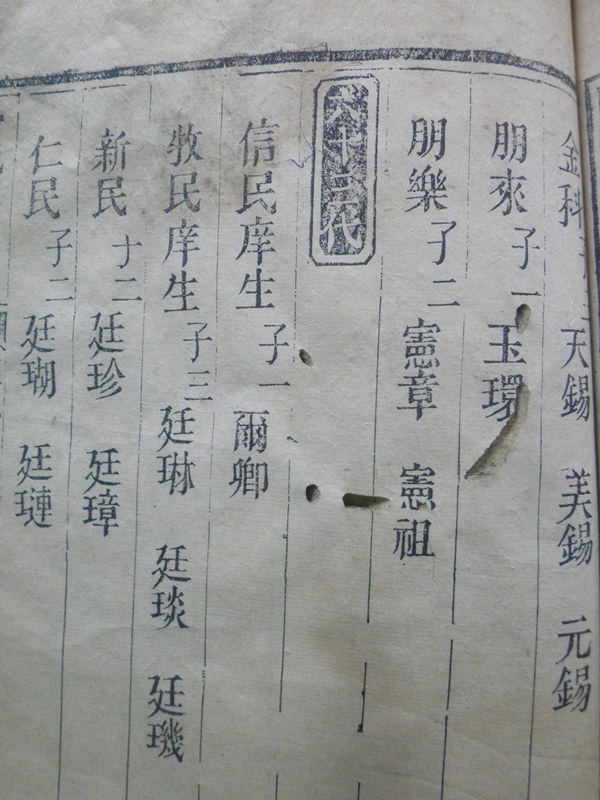 金科子三 天錫 美錫 元錫
朋來子一 玉環
朋樂子二 憲章 憲祖
六十三代
信民庠生子一 爾卿
牧民庠生子三 廷琳 廷琰 廷璣
新民子二 廷珍 廷璋
仁民子二 廷瑚 廷璉